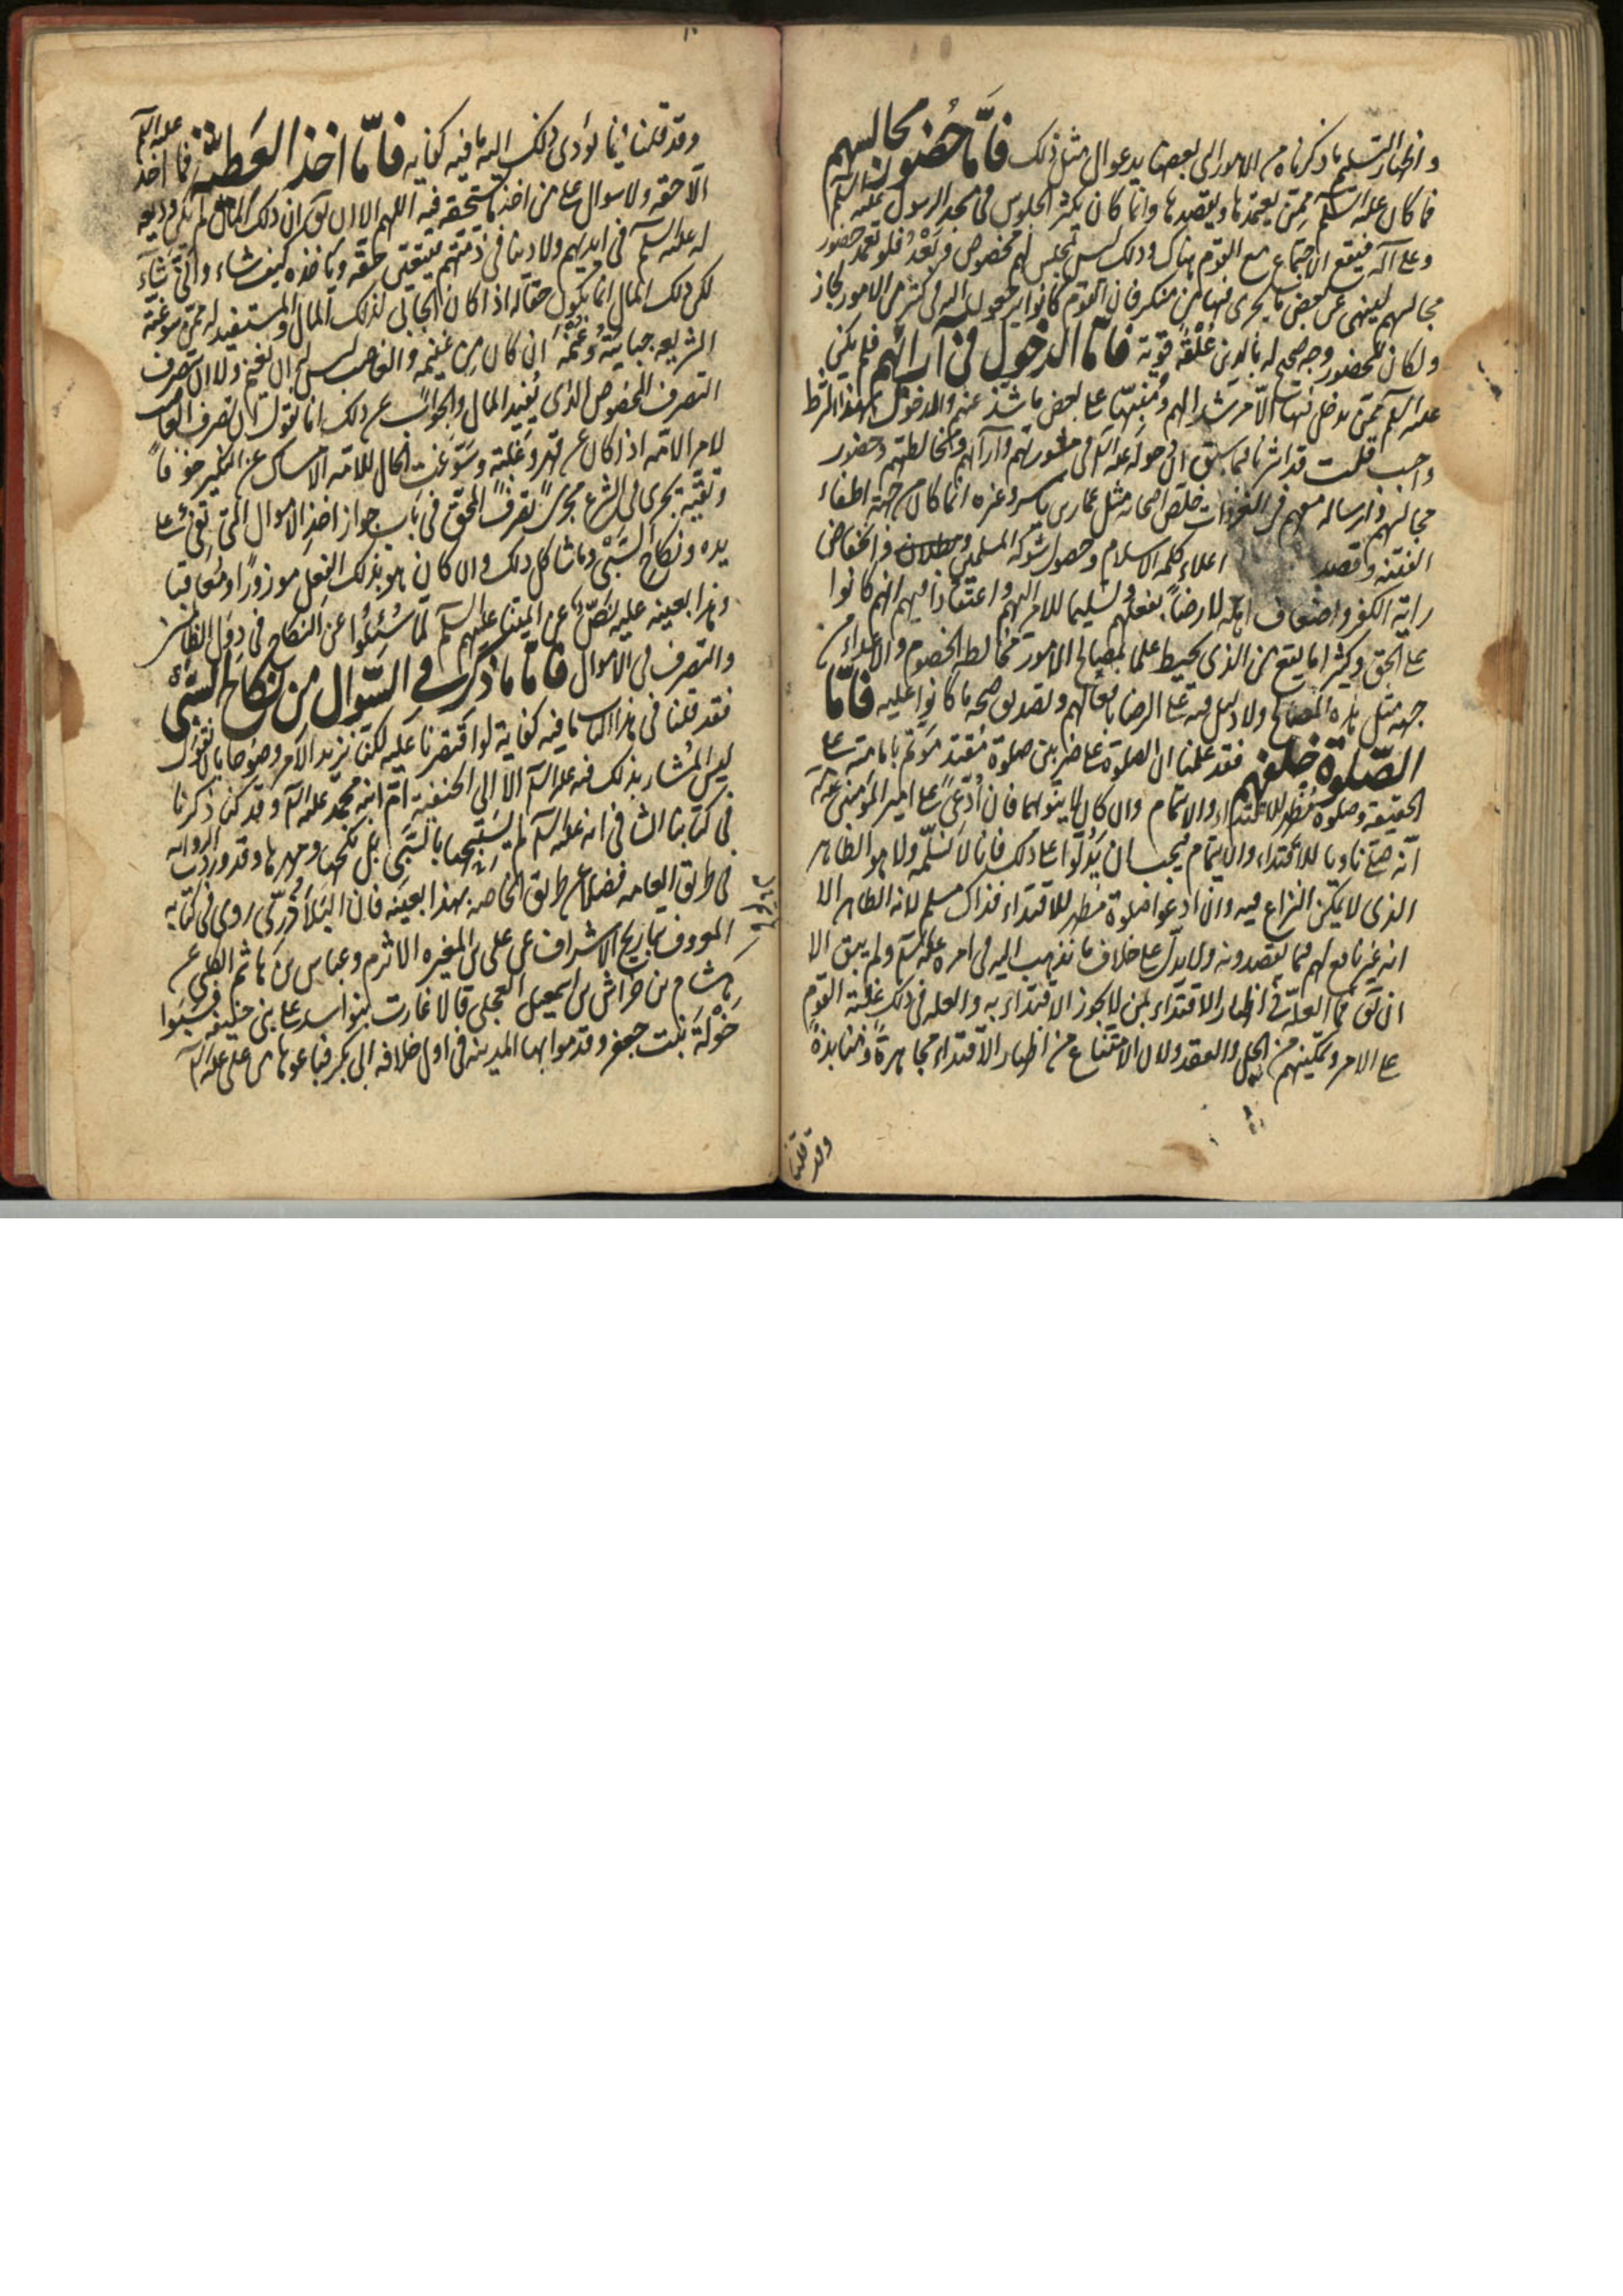 واظهار التسليم ما ذكرناه من الامور الى بعضها يدعوا الى مثل ذلك فامّا حُضور مجالسهم
فما كان عليه السلم ممّن يعتمدها ويقصدها وانما كان يكثر الجلوس فى مسجد الرسول عليه السلم
وعلى آله فيقع الاجتماع مع القوم هناك وذلك ليس بمجلس لهم مخصوص وبَعْدُ فلو تعمد حضور
مجالسهم لينهى عن بعض ما يجرى فيها من منكر فان القوم كانوا يرجعون اليه فى كثير من الامور لجاز
ولكان للحضور وجه صحيح له بالدين عُلْقَة قوية فامّا الدخول فى آرائهم فلم يكن
عليه السلم ممّن يدخل فيها الّا مرشدا لهم ومُنبّها على بعض ما شذّ عنهم والدخول بهذا الشرط
واجب قلت قد اشرنا فيما سبق الى دخوله عليه السلم فى مشورتهم وآرائهم ومخالطتهم وحضور
مجالسهم وارساله معهم فى الغزوات خلّص اصحابه مثل عمار بن ياسر وغيره انما كان من جهة اطفاء
الفتنة وقصد اعلاء كلمة الاسلام وحصول شوكة المسلمين وانخفاض
راية الكفر واضعاف اهله لا رضاً بفعلهم وتسليما للامر اليهم واعتقادا فيهم انهم كانوا
على الحق وكثيرا ما يقع من الذى يحيط علما بمصالح الامور مخالطة الخصوم والاعداء من
جهة مثل هذه المصالح ولا دليل فيه على الرضا بافعالهم وتصديق صحة ما كانوا عليه فامّا
الصّلوة خلفهم فقد علمنا ان الصلوة على ضربين صلوة مُقتد مؤتم بامامته على
الحقيقة وصلوة مُظهر للاقتداء والايتمام وان كان لا ينويهما فان ادّعىً على امير المؤمنين عليه السلم
انه صلّى ناويا للاقتداء والايتمام فيجب ان يَدُلّوا على ذلك فانا لا نسلّمه ولا هو الظاهر
الذى لا يمكن النزاع فيه وان ادعوا صلوة مُظهر للاقتداء فذاك مسلم لانه الظاهر الا
انه غير نافع لهم فيما يقصدونه ولا يدلّ على خلاف ما نذهب اليه فى امره عليه السلم ولم يبق الا
ان يق فما العلّة فى اظهار الاقتداء بمن لا يجوز الاقتداء به والعلة فى ذلك غلبة القوم
على الامر وتمكينهم من الحل والعقد ولان الامتناع من اظهار الاقتداء مجاهرةً ومنابذةً
وقد قلنا
وقد قلنا فيما يؤدى ذلك اليه ما فيه كفاية فامّا اخذ العَطيّة فما اخذ عليه السلم
الّا حقه ولا سوال على من اخذ ما يستحقه فيه اللهم الا ان يق ان ذلك المال لم يكن وديعه
له عليه السلم فى ايديهم ولا دينا فى ذمتهم فيتعيّن حقه وياخذه كيف شاء وانّى شاء
لكن ذلك المال انما يكون حقا له اذا كان الجابى لذلك المال والمستفيد له ممن سوّغته
الشريعه جبايته وغنمَه ان كان من غنيمة والغاصب ليس له ان يغنم ولا ان يتصرف
التصرف المخصوص الذى يُفيد المال والجواب عن ذلك انا نقول ان تصرف الغاصب
لامر الامّه اذا كان عن قهر وغلبة وسَوّغت الحال للامّه الامساك عن النكير خوفاً
وتقيّة يجرى فى الشرع مجرى تصرف المحق فى باب جواز اخذ الاموال التى تفئ على
يده ونكاح السَّبْى وما شاكل ذلك وان كان هو بذلك الفعل موزورًا ومُعاقبا
وهذا بعينه عليه نصّ عن ائمتنا عليهم السلم لما سُئلُوا عن النكاح فى دول الظالمين
والتصرف فى الاموال فامّا ما ذكر فى السّوال من نكاح السَّبْى
فقد قلنا فى هذا الباب ما فيه كفاية لو اقتصرنا عليه لكنا نزيد الامر وضوحا بان نقول
ليس المُشار بذلك فيه عليه السلم الّا الى الحنفية امّ ابنه محمّد عليه السلم وقد كنا ذكرنا
فى كتابنا الشافى انه عليه السلم لم يستبحها بالسَّبْى بل نكحها ومهرها وقد وردت الروايه
من طريق العامه فضلا عن طريق الخاصه بهذا بعينه فان البَلاذُرىّ روى فى كتابه
المعروف بتاريخ الاشراف عن على بن المغيره الاثرم وعباس بن هاشم الكلبى عن
هشام بن خراش بن اسمعيل العجلى قالا غارت بنو اسد على بنى حنيفه فسَبَوا
خَوْلَة بنت جعفر وقدموا بها المدينه فى اول خلافه ابى بكر فباعوها من على عليه السلم